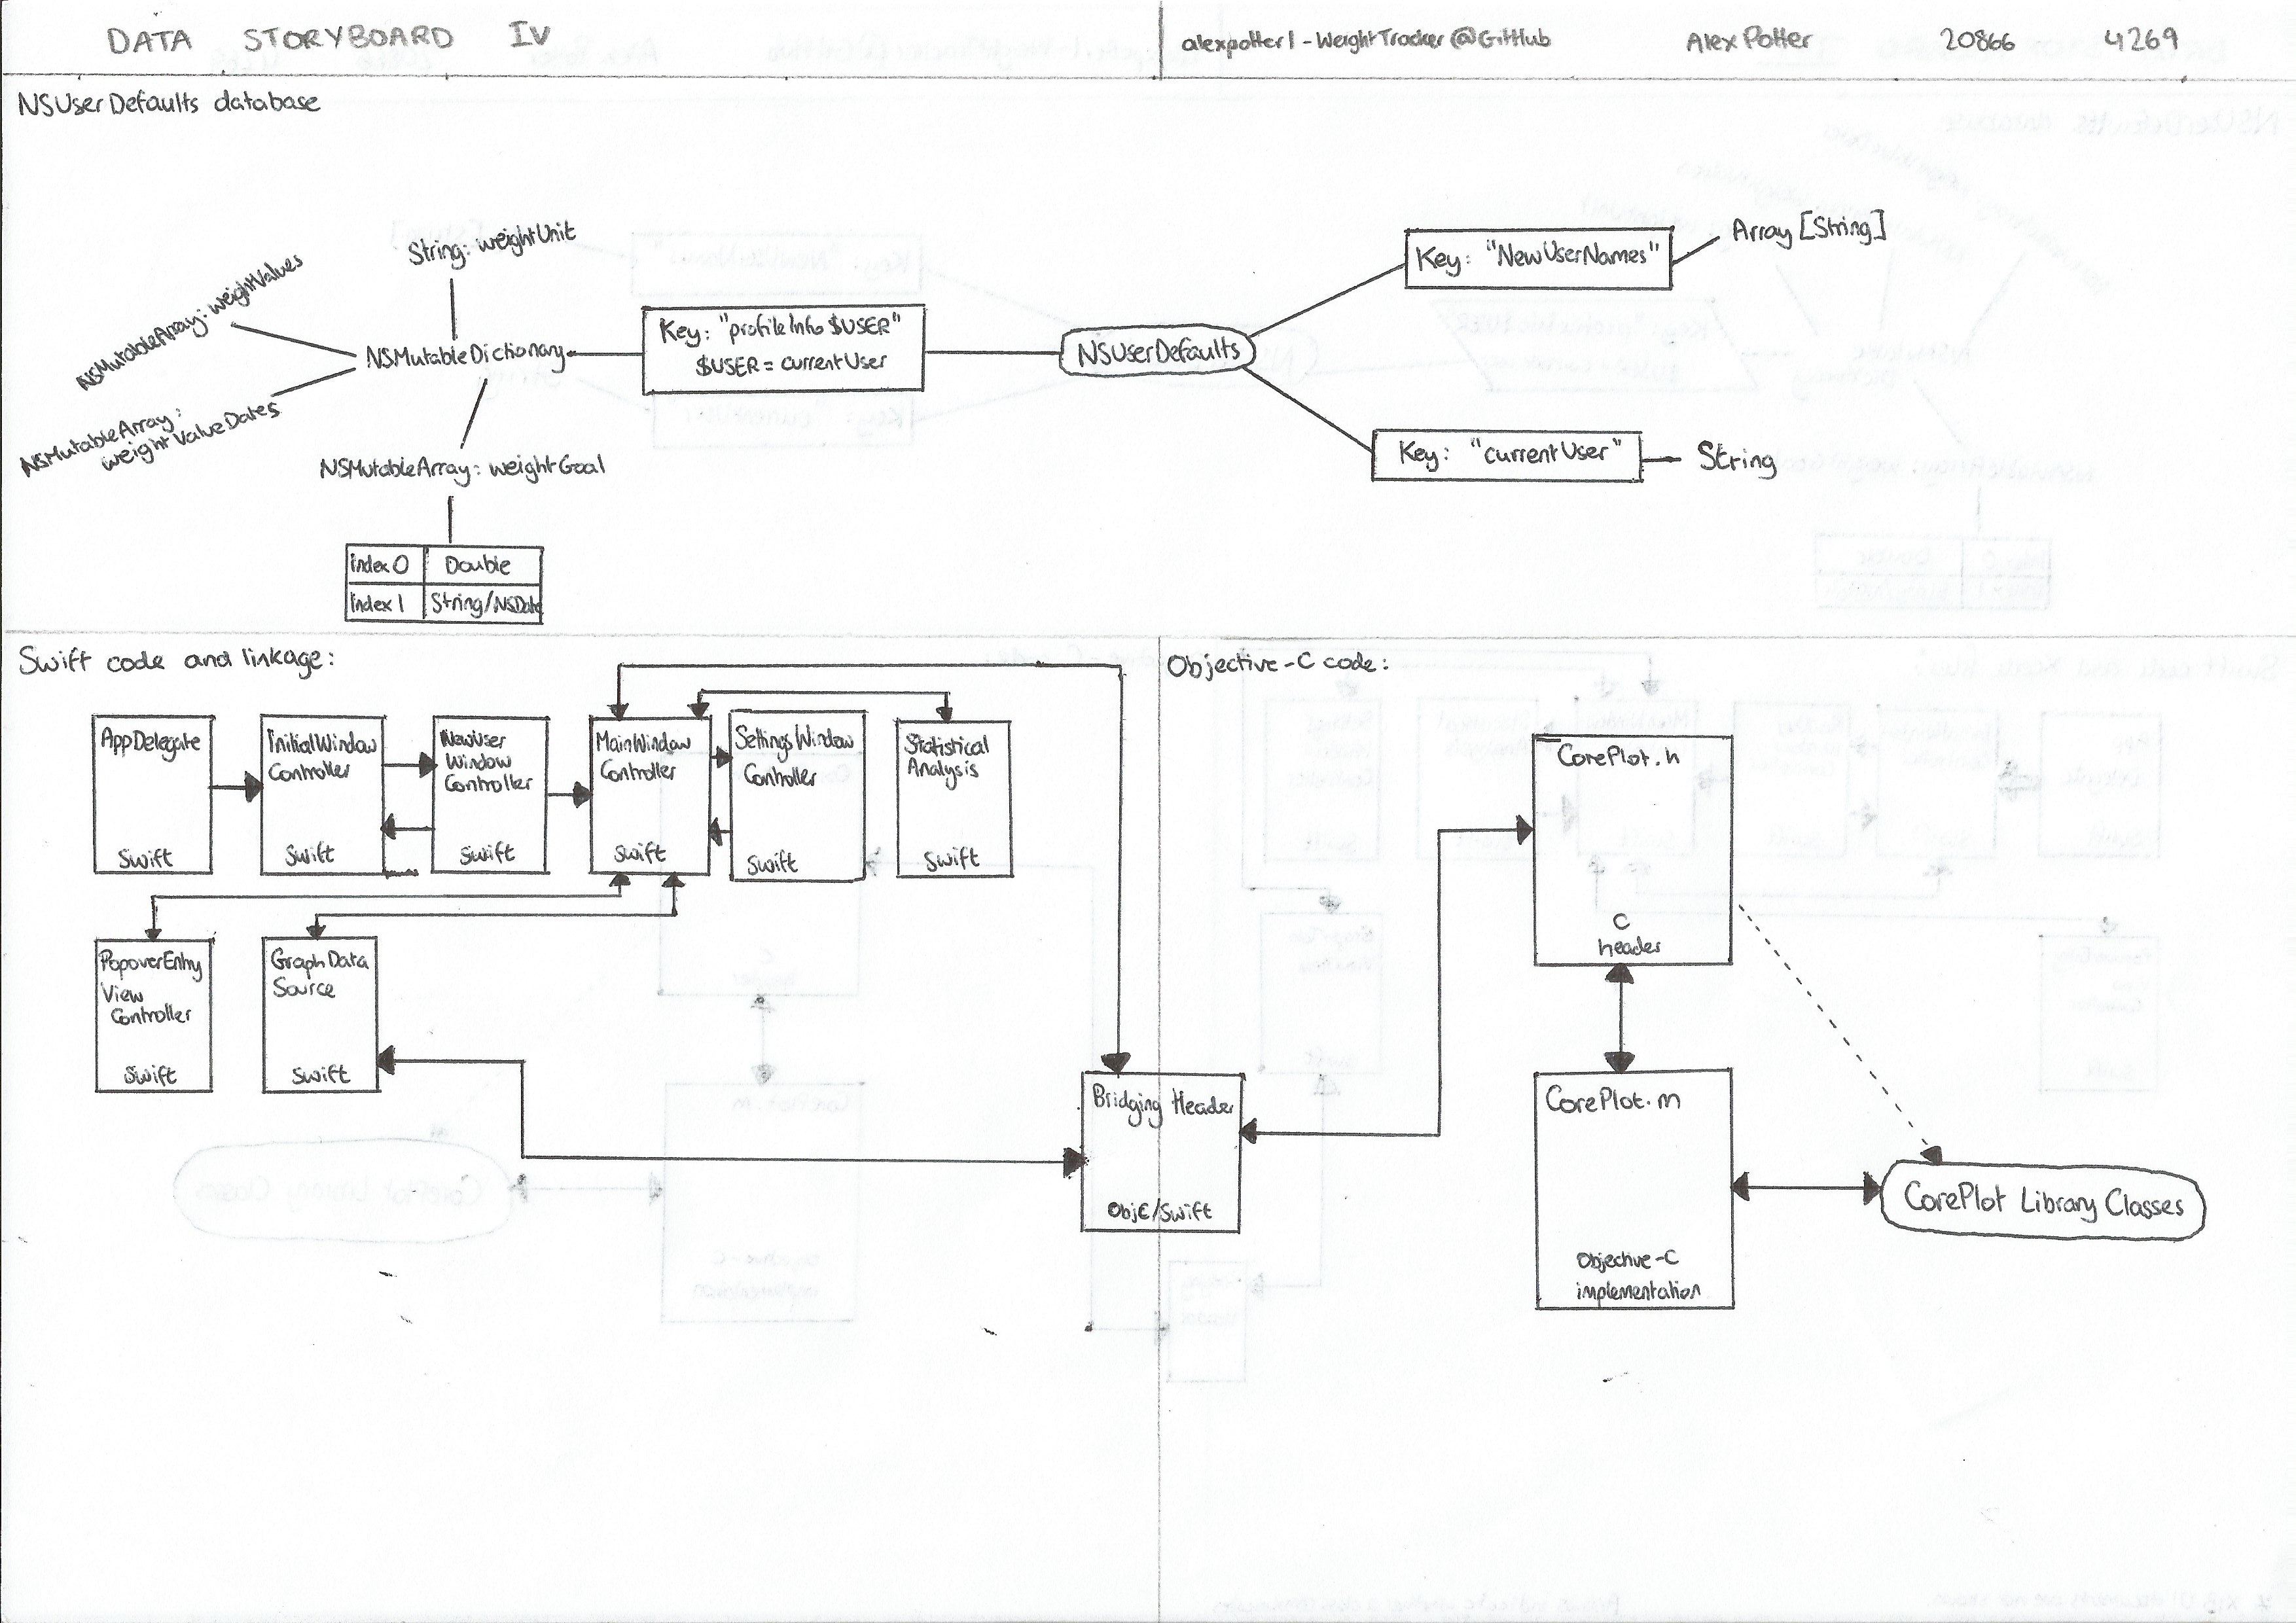 DATA STORYBOARD IV
alexpotter1 - WeightTracker @GitHub Alex Potter 20866 4269
NSUserDefaults database
String: weightUnit
NSMutableArray: weightValues
NSMutableDictionary
NSMutableArray:
weightValueDates
NSMutableArray: weightGoal
Index 0 Double
Index 1 String/NSDate
Key: "profileInfo $USER"
$USER = currentUser
NSUserDefaults
Key: "NewUserNames"
Array [String]
Key: "currentUser"
String
Swift code and linkage:
AppDelegate
Swift
InitialWindow
Controller
Swift
NewUser
Window
Controller
Swift
MainWindow
Controller
Swift
SettingsWindow
Controller
Swift
Statistical
Analysis
Swift
PopoverEntry
View
Controller
Swift
GraphData
Source
Swift
Bridging Header
ObjC/Swift
Objective-C code:
CorePlot.h
C
header
CorePlot.m
Objective-C
implementation
CorePlot Library Classes